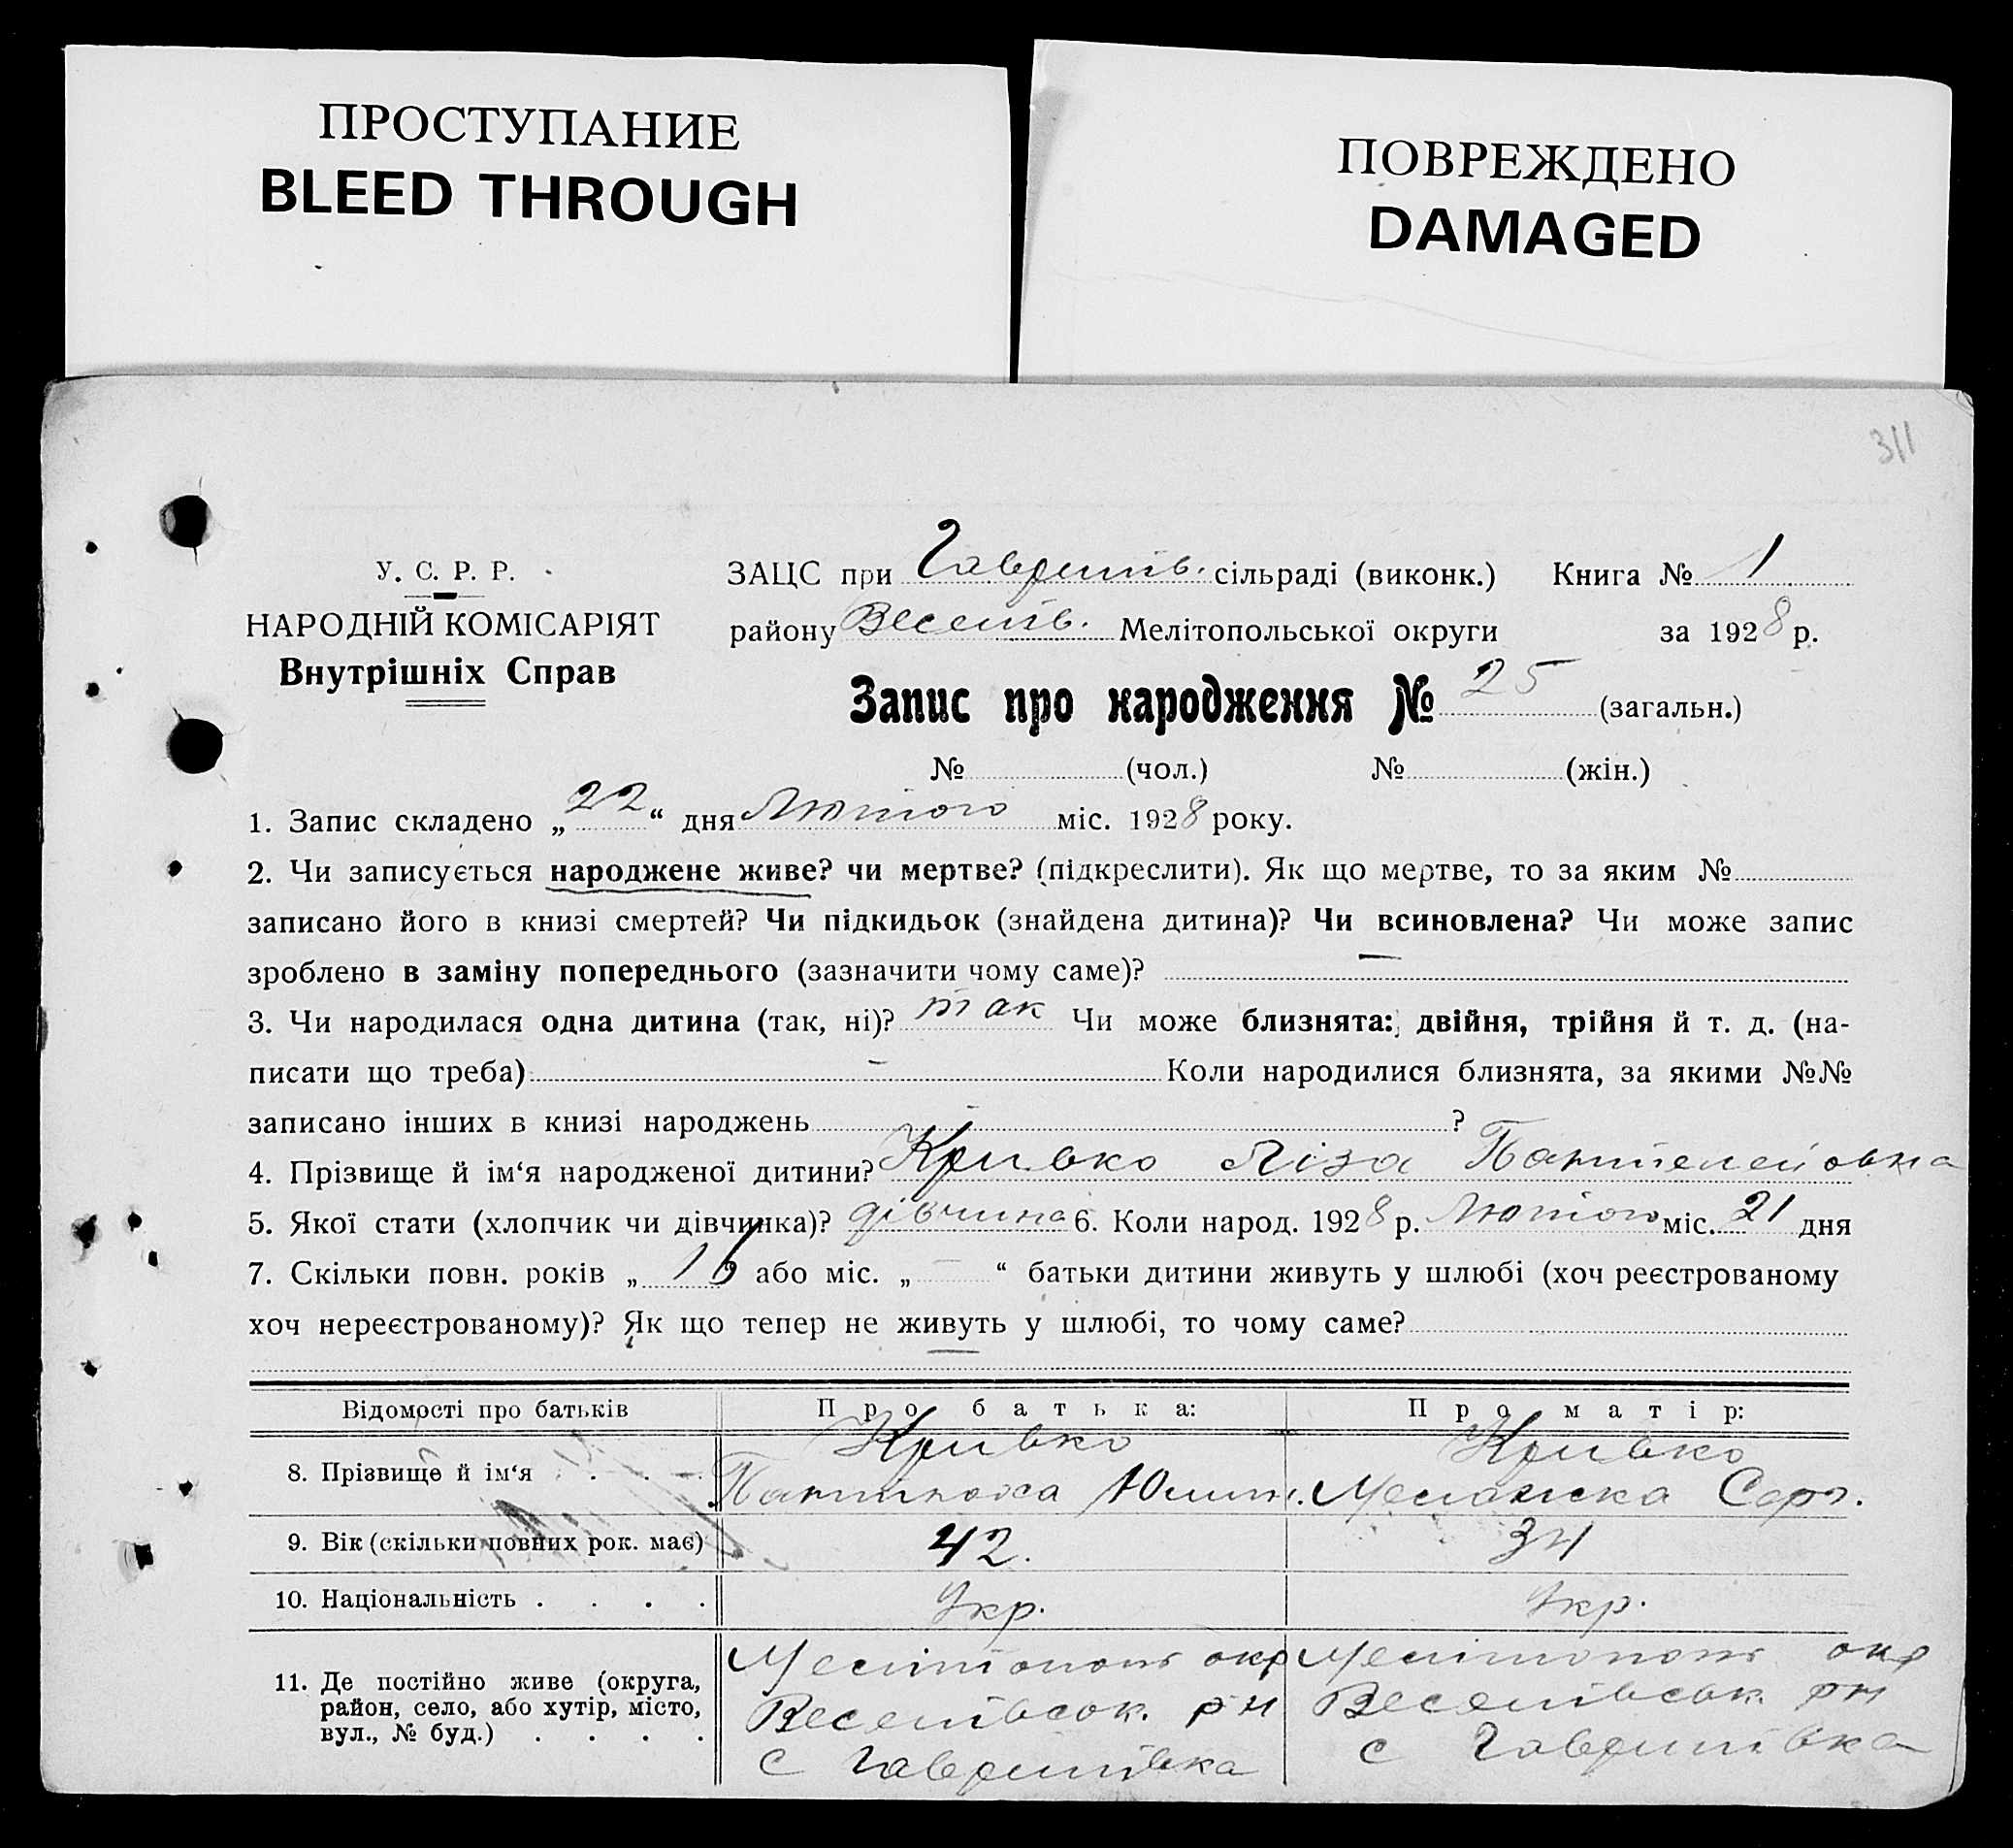 ПРОСТУПАНИЕ
BLEED THROUGH
ПОВРЕЖДЕНО
DAMAGED
311
У. С. Р. Р.
НАРОДНІЙ КОМІСАРІЯТ
Внутрішніх Справ
ЗАЦС при Гаврилів. сільраді (виконк.) Книга № 1
району Веселів. Мелітопольської округи за 1928 р.
Запис про народження № 25 (загальн.)
№ (чол.) № (жін.)
1. Запис складено „22“ дня Лютого міс. 1928 року.
2. Чи записується народжене живе? чи мертве? (підкреслити). Як що мертве, то за яким №
записано його в книзі смертей? Чи підкидьок (знайдена дитина)? Чи всиновлена? Чи може запис
зроблено в заміну попереднього (зазначити чому саме)? —
3. Чи народилася одна дитина (так, ні)? так Чи може близнята: двійня, трійня й т. д. (на-
писати що треба) — Коли народилися близнята, за якими №№
записано інших в книзі народжень ?
4. Прізвище й ім‘я народженої дитини? Кривко Ліза Пантелейовна
5. Якої стати (хлопчик чи дівчинка)? дівчина 6. Коли народ. 1928 р. Лютого міс. 21 дня
7. Скільки повн. років „16 або міс. „ — “ батьки дитини живуть у шлюбі (хоч реєстрованому
хоч нереєстрованому)? Як що тепер не живуть у шлюбі, то чому саме?
Відомості про батьків Про батька: Про матір:
8. Прізвище й ім‘я . . . . Кривко Кривко
Меланка Серг.
9. Вік (скільки повних рок. має) 42. 34
10. Національність . . . . Укр. Укр.
11. Де постійно живе (округа,
район, село, або хутір, місто,
вул., № буд.) . . . .
Мелітополь окр
Веселівськ. р н
с Гаврилівка
Мелітополь окр
Веселівськ. рн
с Гаврилівка